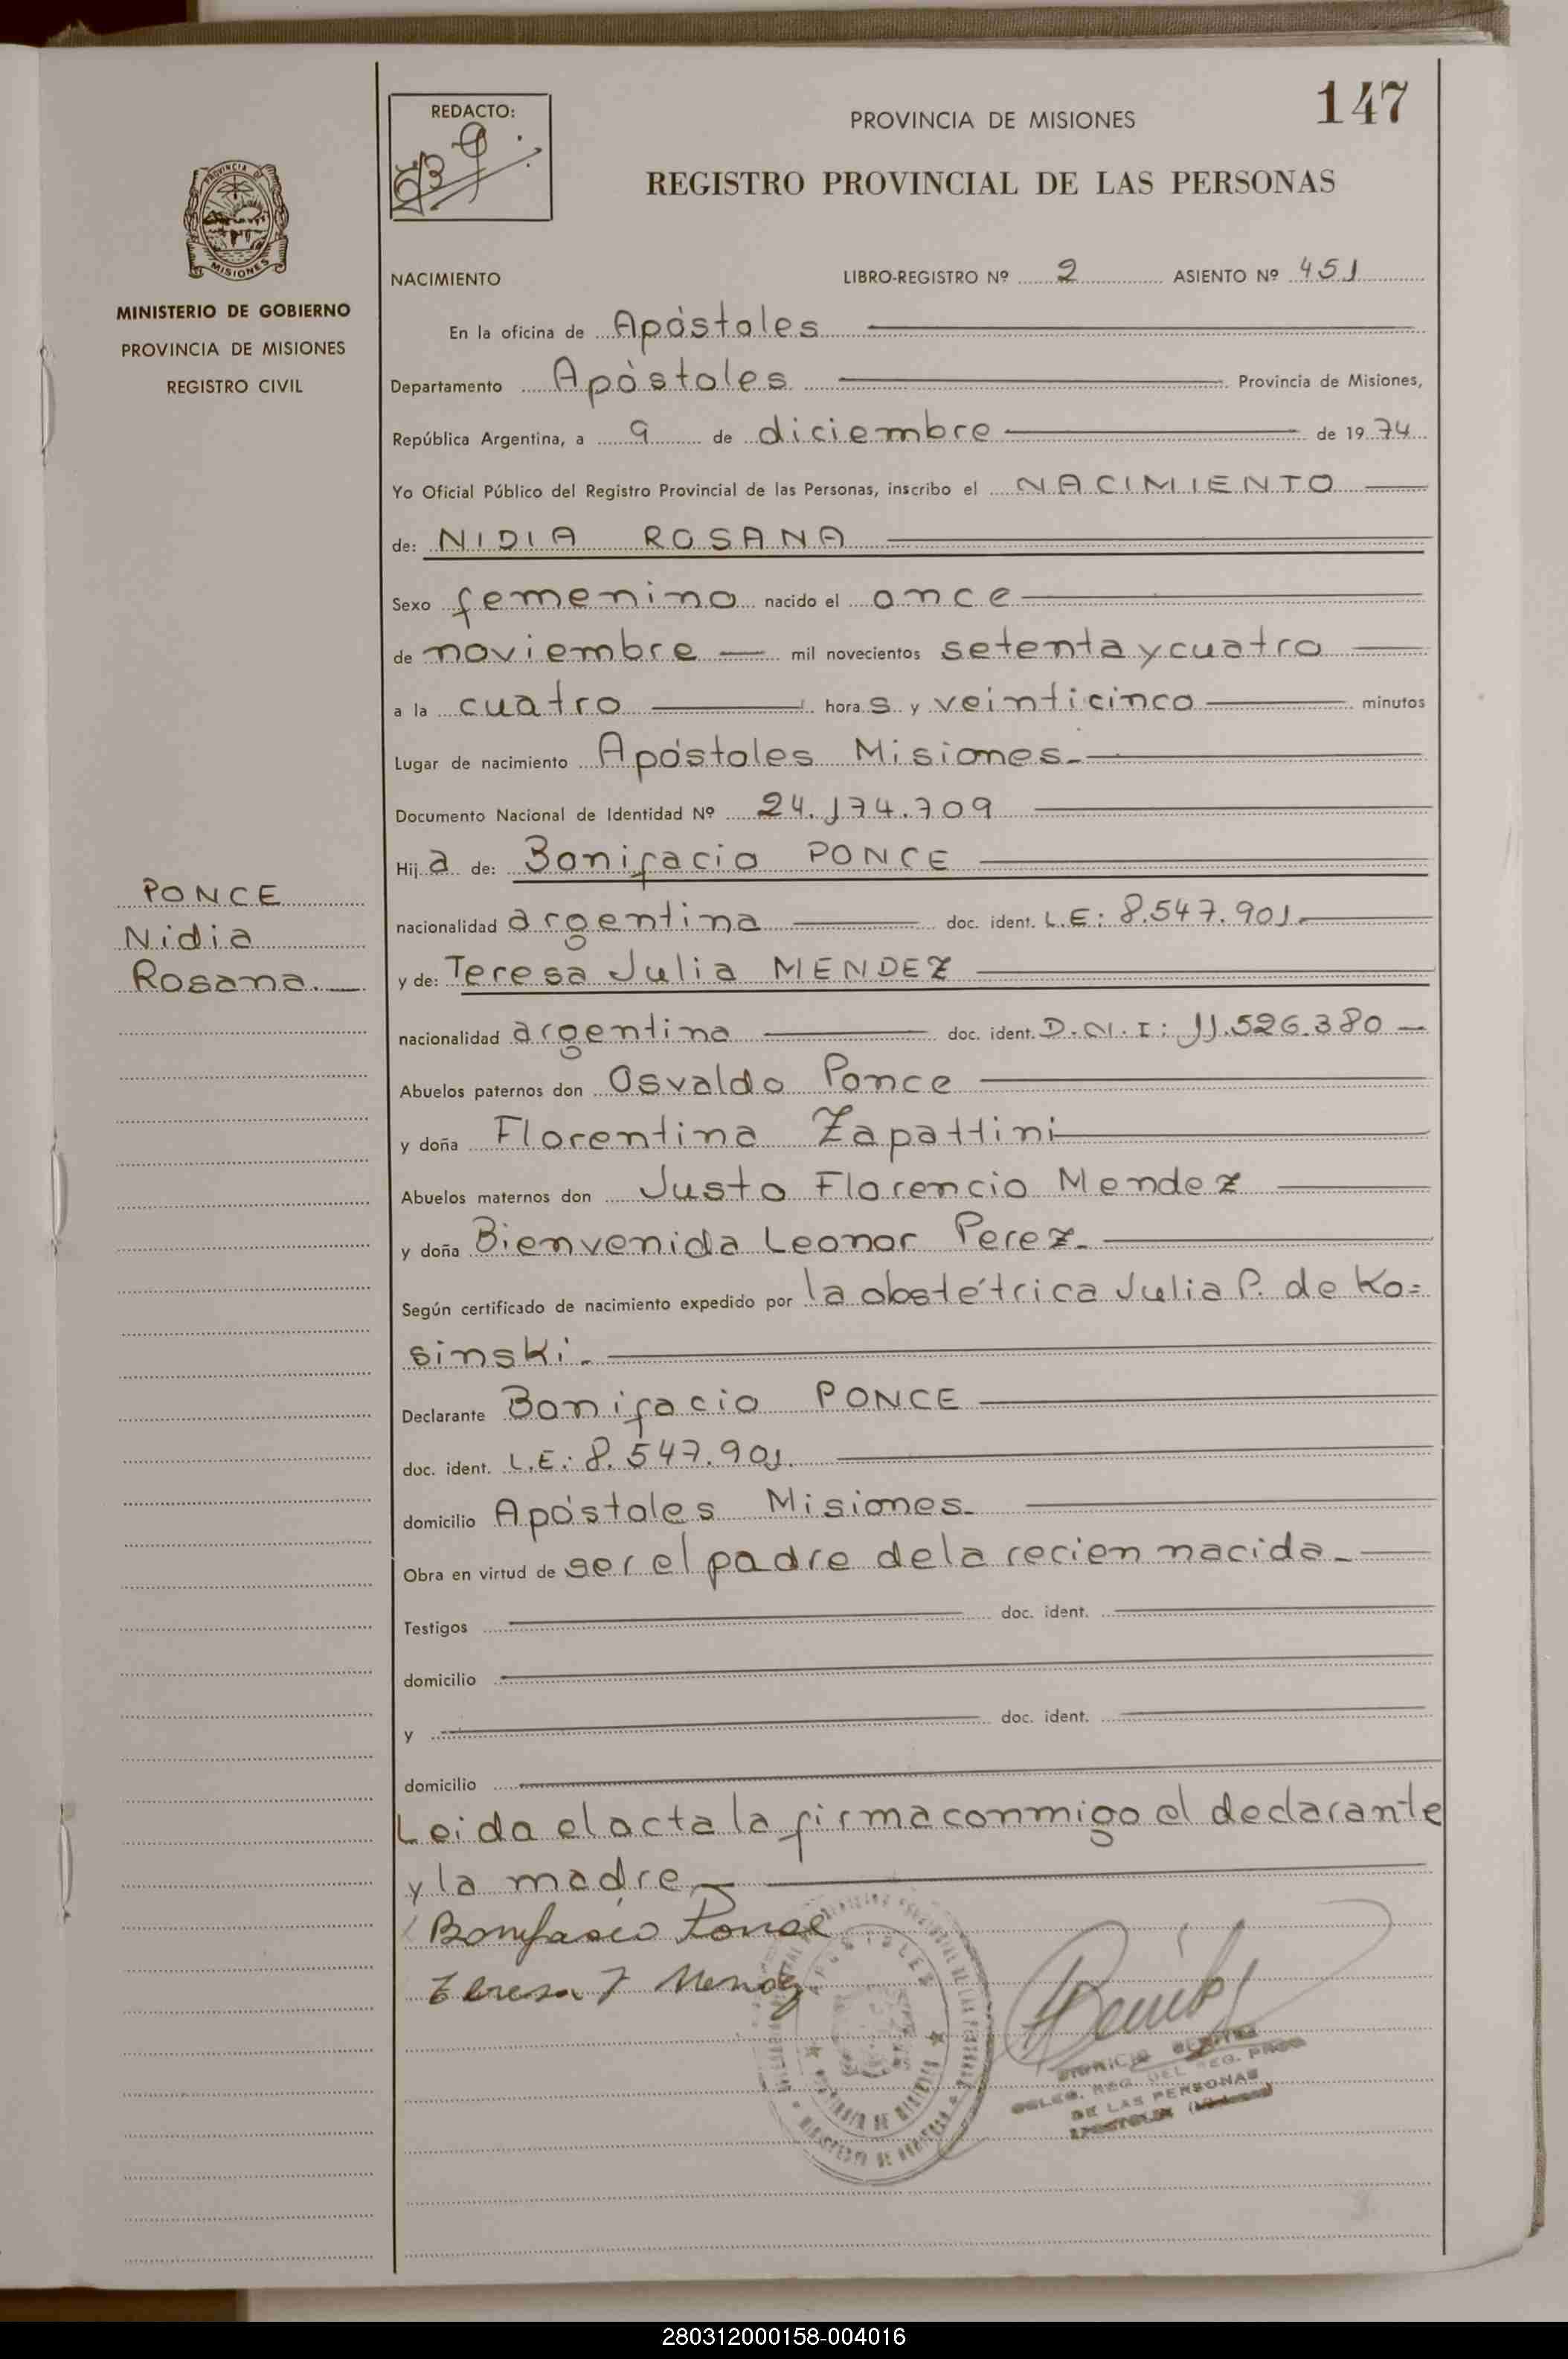 147
REDACTO:
PROVINCIA DE MISIONES
REGISTRO PROVINCIAL DE LAS PERSONAS
MISIONES
MINISTERIO DE GOBIERNO
PROVINCIA DE MISIONES
REGISTRO CIVIL
NACIMIENTO LIBRO-REGISTRO Nº 2 ASIENTO Nº 451
En la oficina de Apóstoles
Departamento Apóstoles Provincia de Misiones,
República Argentina, a 9 de diciembre de 1974
Yo Oficial Público del Registro Provincial de las Personas, inscribo el NACIMIENTO
de: NIDIA ROSANA
Sexo femenino nacido el once
de noviembre mil novecientos setenta y cuatro
a la cuatro hora s y veinticinco minutos
Lugar de nacimiento Apóstoles Misiones.
Documento Nacional de Identidad Nº 24.174.709
Hij a de: Bonifacio PONCE
PONCE
Nidia
Rosana.
nacionalidad argentina doc. ident. L.E: 8.547.901.
y de: Teresa Julia MENDEZ
nacionalidad argentina doc. ident. D.N.I: 11.526.380
Abuelos paternos don Osvaldo Ponce
y doña Florentina Zapattini
Abuelos maternos don Justo Florencio Mendez
y doña Bienvenida Leonor Perez.
Según certificado de nacimiento expedido por la obstétrica Julia P. de Ko=
sinski.
Declarante Bonifacio PONCE
doc. ident. L.E: 8.547.901.
domicilio Apóstoles Misiones.
Obra en virtud de ser el padre de la recien nacida.
Testigos doc. ident.
domicilio
y doc. ident.
domicilio
Leida el acta la firma conmigo el declarante
y la madre
Bonifacio Ponce
Teresa J Mendez
DELEG. REG. DEL REG. PROV.
DE LAS PERSONAS
APOSTOLES (Misiones)
280312000158-004016